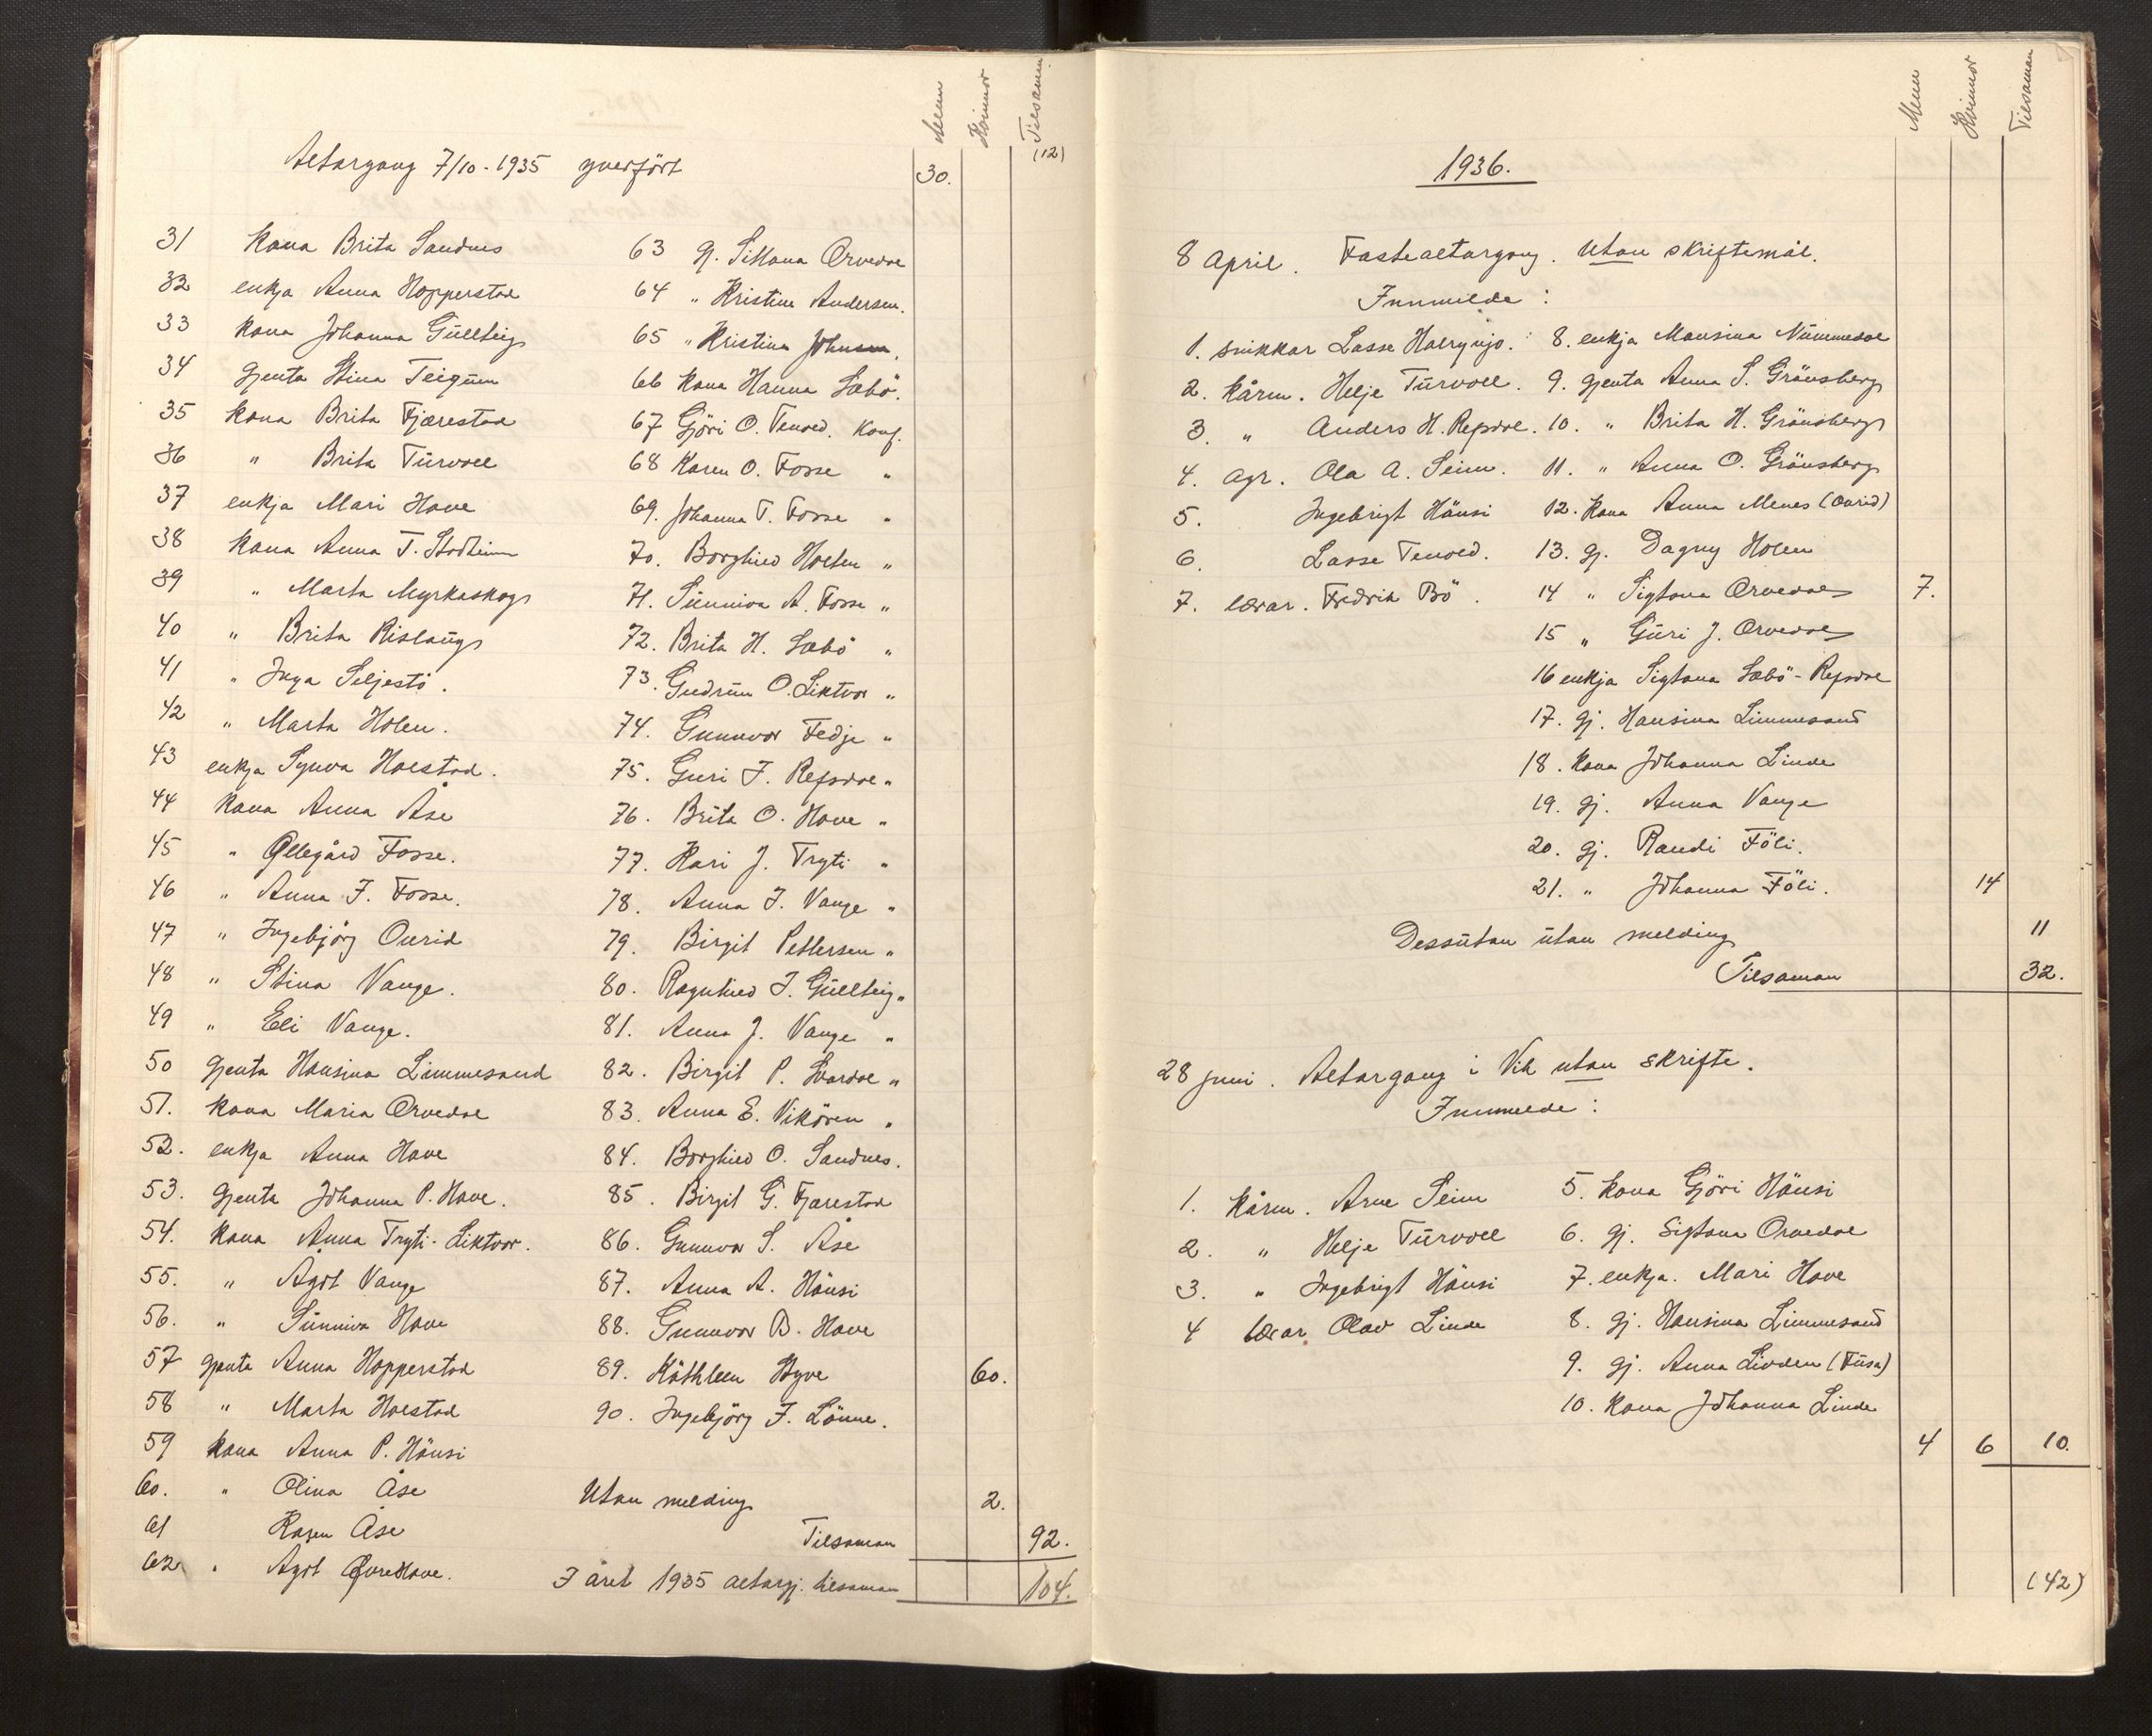 Menn Kvinnor Tilsaman
(12)
Altargang 7/10 - 1935 yverført 30.
31 kona Brita Sandnes
32 enkja Anna Hopperstad
33 kona Johanna Gullteig
34 gjenta Stina Teigum
35 kona Brita Fjærestad
36 " Brita Turvoll
37 enkja Mari Hove
38 kona Anna T. Stadheim
39 " Marta Myrkaskog
40 " Brita Rislaug
41 " Inga Seljestö.
42 " Marta Holen.
43 enkja Synva Holstad.
44 kona Anna Åse
45 " Ollegård Fosse.
46 " Anna J. Fosse.
47 " Ingebjørg Ovrid
48 " Stina Vange.
49 " Eli Vange.
50 gjenta Hansina Limmesand
51. kona Maria Orvedal
52. enkja Anna Hove
53. gjenta Johanna P. Hove.
54. kona Anna Tryti-Liktvor.
55. " Agöt Vange
56. " Sunniva Hove
57 gjenta Anna Hopperstad
58 " Marta Holstad
59 kona Anna P. Hönsi
60. " Olina Åse
61 Åse
62 " Agöt Øvre Hove.
63 gj. Orvedal
64 " Kristine Andersen.
65 " Kristina Johnsen.
66 kona Hanna Sæbö.
67 Gjöri O. Tenold. Konf.
68 Karen O. Fosse "
69. Johanna T. Fosse "
70. Borghild Holten "
71. Sunniva A. Fosse "
72. Brita H. Sæbö "
73. Gudrun O. Liktvor "
74. Gunnvor Fedje "
75. Guri J. Refsdal "
76. Brita O. Hove "
77. Kari J. Tryti "
78. Anna J. Vange "
79. Birgit Pettersen "
80. Ragnhild J. Gullteig "
81. Anna J. Vange "
82. Birgit P. Svardal "
83. Anna E. Vikören "
84. Borghild O. Sandnes.
85. Birgit G. Fjærestad
86. Gunnvor S. Åse
87. Anna A. Hönsi
88. Gunnvor B. Hove
89. Käthleen Hyve 60.
90. Ingebjörg J. Lönne.
Utan melding 2.
Tilsaman 92.
I året 1935 altargj. tilsaman 104.
Menn Kvinnor Tilsaman
1936.
8 april. Fastealtargang. Utan skriftemål.
Innmelde:
1. snikkar Lasse
2. kårm. Helje Turvoll.
3. " Anders H. Refsdal.
4. agr. Ola A. Seim.
5. Ingebrigt Hönsi
6. Lasse Tenold.
7. lærar. Fredrik Bö. 7.
8. enkja Monsina Nummedal
9. gjenta Anna S. Grönsberg
10. " Brita H. Grönsberg
11. " Anna O. Grönsberg
12. kona Anna Menes (Ovrid)
13. gj. Dagny Holen
14 " Sigtona Orvedal
15 " Guri J. Orvedal
16 enkja Sigtona Sæbö-Refsdal
17. gj. Hansina Limmesand
18. kona Johanna Linde
19. gj. Anna Vange
20. gj. Randi Föli.
21. " Johanna Föli. 14
Dessutan utan melding 11
Tilsaman 32.
28 juni. Altargang i Vik utan skrifte.
Innmelde:
1. kårm. Arne Seim
2. " Helje Turvoll
3. " Ingebrigt Hönsi
4 lærar Olav Linde
5. kona Gjöri Hönsi
6. gj. Sigtona Orvedal
7. enkja. Mari Hove
8. gj. Hansina Limmesand
9. gj. Anna Livden (Fusa)
10. kona Johanna Linde
4 6 10.
(42)